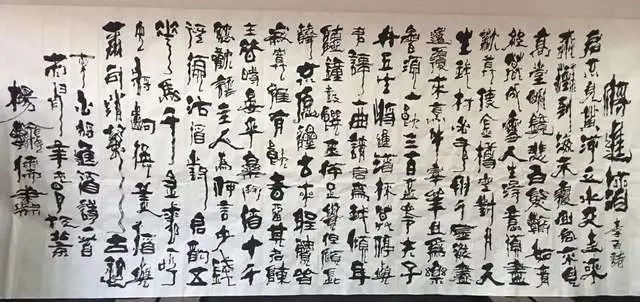 將進酒
李白詩
君不見黃河之水天上來
奔流到海不復回君不見
高堂明鏡悲白髮朝如青
絲暮成雪人生得意須盡
歡莫使金樽空對月天
生我材必有用千金散盡
還復來烹羊宰牛且為樂
會須一飲三百杯岑夫子
丹丘生將進酒杯莫停與
君歌一曲請君為我傾耳
聽鐘鼓饌玉不足貴但願長
醉不願醒古來聖賢皆
寂寞惟有飲者留其名陳
王昔時宴平樂斗酒十千
恣歡謔主人為何言少錢
徑須沽酒對君酌五
花馬千金裘呼
兒將出換美酒與
爾同銷萬古愁
李白將進酒詩一首
楊儒書